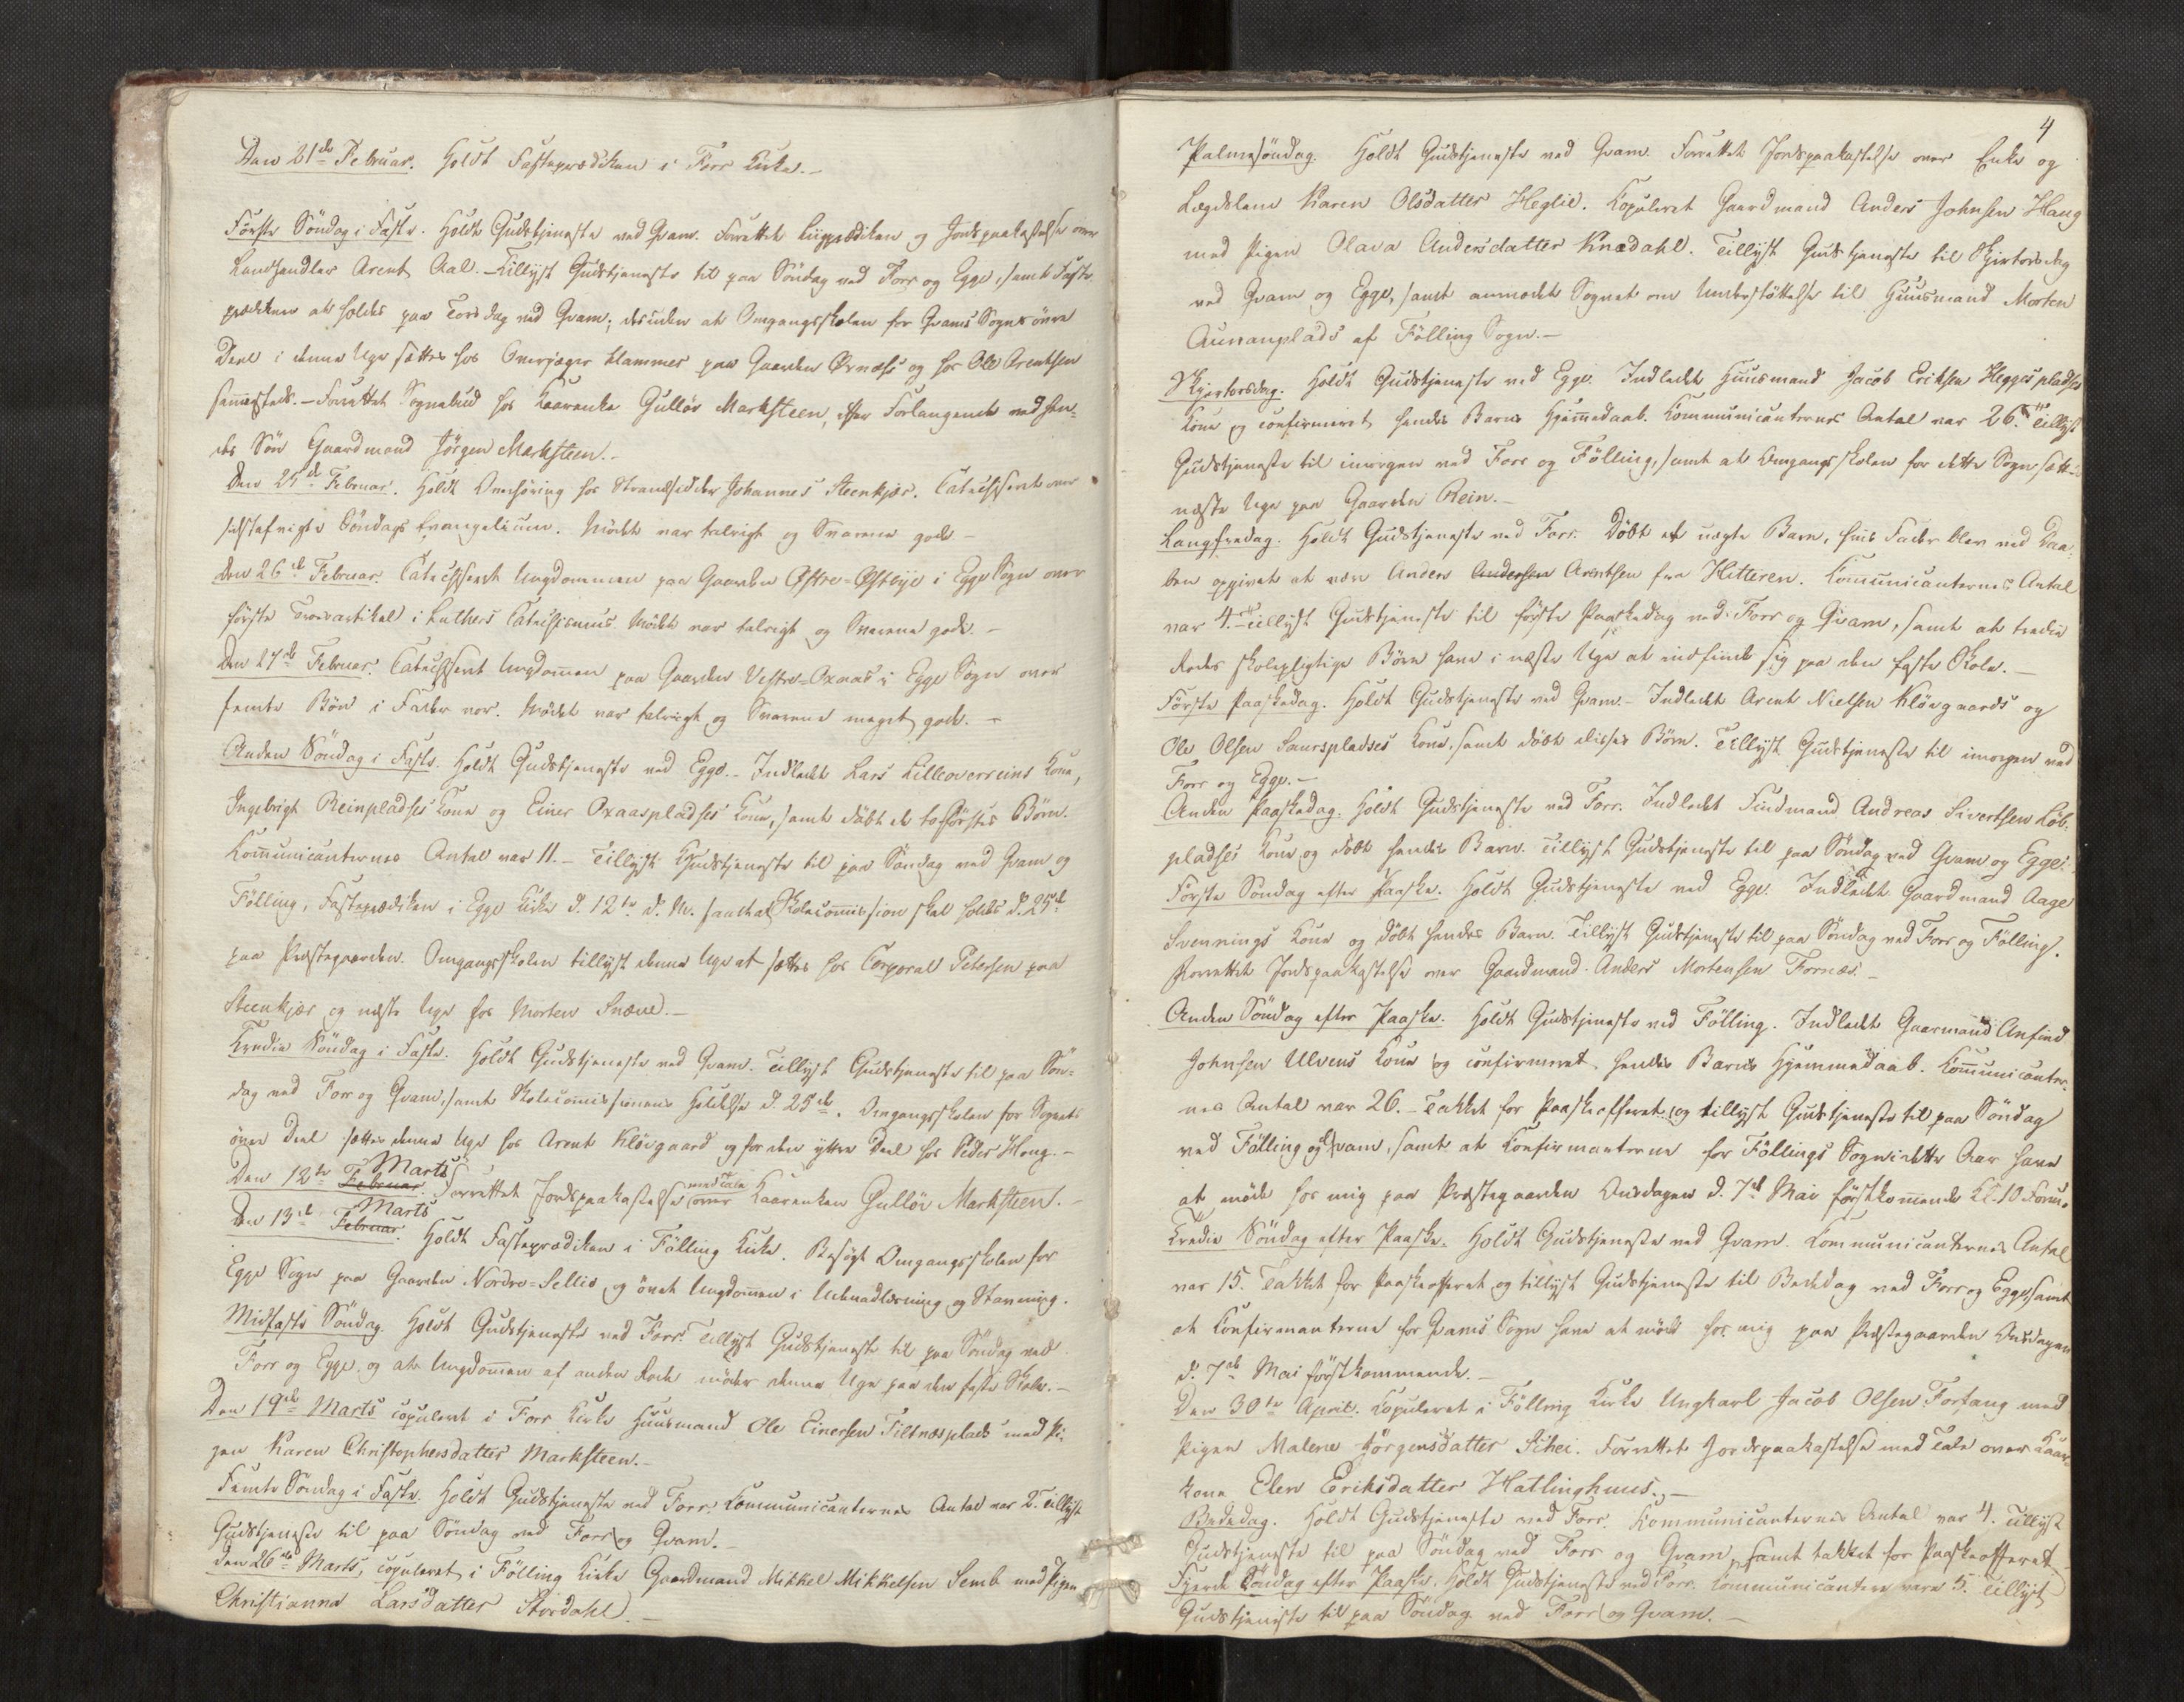 Den 21de Februar. Holdt Fasteprædiken i Forr Kirke.-
Første Söndag i Faste. Holdt Gudstjeneste ved Qvam. Forrettet Liigprædiken og Jordspaakastelse over
Landhandler Arent Aal.- Tillyst Gudstjeneste til paa Söndag ved Forr og Egge, samt Faste
prædiken at holdes paa Torsdag ved Qvam; desuden at Omgangsskolen for Qvams Sogns övre
Deel i denne Uge sættes hos Overjæger Klammer paa Gaarden Örnæss og hos Ole Arentsen
sam̅esteds.- Forrettet Sognebud hos Kaarenke Gullöv Marksteen, efter Forlangende ved hen-
des Sön Gaardmand Jörgen Marksteen.-
Den 25de Februar. Holdt Overhöring hos Strandsidder Johannes Steenkjær. Catechiseret over
sidstafvigte Söndags Evangelium. Mödet var talrigt og Svarene gode.-
Den 26de Februar. Catechiseret Ungdommen paa Gaarden Østre-Østbye i Egge Sogn over
förste Troesartikel i Luthers Catechismus. Mödet var talrigt og Svarene gode.-
Den 27de Februar. Catechiseret Ungdom̅en paa Gaarden Vestre-Oxaas i Egge Sogn over
femte Bön i Fader vor. Mödet var talrigt og Svarene meget gode.-
Anden Söndag i Faste. Holdt Gudstjeneste ved Egge.- Indledet Lars Lilleoverreins Kone,
Ingebrigt Reinpladses Kone og Einer Oxaaspladses Kone, samt döbt de to Förstes Börn.
Kom̅unicanternes Antal var 11.- Tillyst Gudstjeneste til paa Söndag ved Qvam og
Fölling, Fasteprædiken i Egge Kirke d. 12te d. M. samt at Skolecom̅ission skal holdes d. 25de
paa Præstegaarden. Omgangsskolen tillyst denne Uge at sættes hos Corporal Petersen paa
Steenkjær og næste Uge hos Morten Sneeve.-
Tredie Söndag i Faste. Holdt Gudstjeneste ved Qvam. Tillyst Gudstjeneste til paa Sön-
dag ved Forr og Qvam, samt Skolecom̅issionens Holdelse d. 25de. Omgangsskolen for Sognets
övre Deel sættes denne Uge hos Arent Klövgaard og for den yttre Deel hos Peder Haug.-
Den 12te Februar Marts. Forrettet Jordspaakastelse med Tale over Kaarenken Gullöv Marksteen.-
Den 13de Februar Marts. Holdt Fasteprædiken i Fölling Kirke. Besögt Omgangsskolen for
Egge Sogn paa Gaarden Nordre-Sellie og övet Ungdom̅en i Udenadlæsning og Stavning.
Midfaste Söndag. Holdt Gudstjeneste ved Forr. Tillyst Gudstjeneste til paa Söndag ved
Forr og Egge, og at Ungdom̅en af anden Rode möder denne Uge paa den faste Skole.-
Den 19de Marts copuleret i Forr Kirke Huusmand Ole Einersen Tiltnæsplads med Pi-
gen Karen Christophersdatter Marksteen.-
Femte Söndag i Faste. Holdt Gudstjeneste ved Forr. Kommunicanternes Antal var 2. Tillyst
Gudstjeneste til paa Söndag ved Forr og Qvam.-
Den 26de Marts, copuleret i Fölling Kirke Gaardmand Mikkel Mikkelsen Semb med Pigen
Christianna Larsdatter Stordahl.-
4
Palmesöndag. Holdt Gudstjeneste ved Qvam. Forrettet Jordspaakastelse over Enke og
Lægdslem Karen Olsdatter Heglie. Kopuleret Gaardmand Anders Johnsen Haug
med Pigen Olava Andersdatter Knædahl. Tillyst Gudstjeneste til Skjertorsdag
ved Qvam og Egge, samt anmodet Sognet om Understöttelse til Huusmand Morten
Aunanplads af Fölling Sogn.-
Skjertorsdag. Holdt Gudstjeneste ved Egge. Indledet Huusmand Jacob Eriksen Heggespladses
Kone og confirmeret hendes Barns Hjem̅edaab. Kommunicanternes Antal var 26. Tillyst
Gudstjeneste til imorgen ved Forr og Fölling, samt at Omgangsskolen for dette Sogn sættes
næste Uge paa Gaarden Rein.-
Langfredag. Holdt Gudstjeneste ved Forr. Döbt et uægte Barn, hvis Fader blev ved Daa-
ben opgivet at være Anders Andersen Arntsen fra Hitteren. Kom̅unicanternes Antal
var 4. Tillyst Gudstjeneste til förste Paaskedag ved Forr og Qvam, samt at tredie
Rodes skolepligtige Börn have i næste Uge at indfinde sig paa den faste Skole.-
Förste Paaskedag. Holdt Gudstjeneste ved Qvam.- Indledet Arent Nielsen Klövgaards og
Ole Olsen Saurspladses Kone, samt döbt disses Börn. Tillyst Gudstjeneste til imorgen ved
Forr og Egge.-
Anden Paaskedag. Holdt Gudstjeneste ved Forr. Indledet Huusmand Andreas Sivertsen Löb-
pladses Kone og döbt hendes Barn. Tillyst Gudstjeneste til paa Söndag ved Qvam og Egge.
Förste Söndag efter Paaske. Holdt Gudstjeneste ved Egge. Indledet Gaardmand Aage
Svennings Kone og döbt hendes Barn. Tillyst Gudstjeneste til paa Söndag ved Forr og Fölling.
Forrettet Jordspaakastelse over Gaardmand Anders Mortensen Fornæs.-
Anden Söndag efter Paaske. Holdt Gudstjeneste ved Fölling. Indledet Gaarmand Anfind
Johnsen Ulvens Kone og confirmeret hendes Barns Hjemmedaab. Kom̅unicanter-
nes Antal var 26.- Takket for Paaskeofferet, og tillyst Gudstjeneste til paa Söndag
ved Fölling og Qvam, samt at Konfirmanterne for Föllings Sogn i dette Aar have
at möde hos mig paa Præstegaarden Onsdagen d. 7de Mai förstkom̅ende Kl. 10 Form.
Tredie Söndag efter Paaske. Holdt Gudstjeneste ved Qvam. Kommunicanternes Antal
var 15. Takket for Paaskeofferet og tillyst Gudstjeneste til Bededag ved Forr og Egge, samt
at Konfirmanterne for Qvams Sogn have at möde hos mig paa Præstegaarden Onsdagen
d. 7de Mai förstkommende.-
Den 30te April. Kopuleret i Fölling Kirke Ungkarl Jacob Olsen Forfang med
Pigen Malene Jörgensdatter Schei. Forrettet Jordspaakastelse med Tale over Kaar-
kone Elen Eriksdatter Hatlinghuus.-
Bededag. Holdt Gudstjeneste ved Forr. Kommunicanternes Antal var 4. Tillyst
Gudstjeneste til paa Söndag ved Forr og Qvam, samt takket for Paaskeofferet.
Fjerde Söndag efter Paaske. Holdt Gudstjeneste ved Forr. Communicantere vare 5. Tillyst
Gudstjeneste til paa Söndag ved Forr og Qvam.-